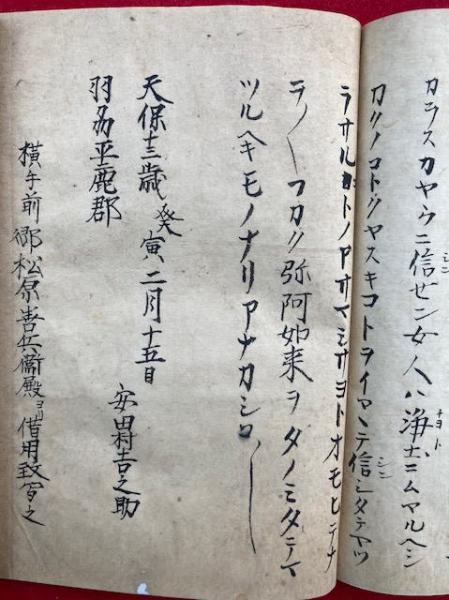 カラスカヤウニ信ゼン女人ハ浄土ニムマルヘシ
カクノコトクヤスキコトヲイマヽテ信シタテマツ
ラサルコトノアサマシサヨトオモヒテナ
ヲ〳〵フカク弥阿如来ヲタノミタテマ
ツルヘキモノナリアナカシコ〳〵
天保十三歳癸寅二月十五日
安田村吉之助
羽刕平鹿郡
横手前郷松原善兵衞殿ヨリ借用致写之